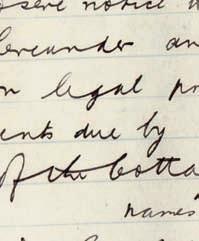 serve notice
hereunder an
n legal pr
ents due by
of the Cotta
names